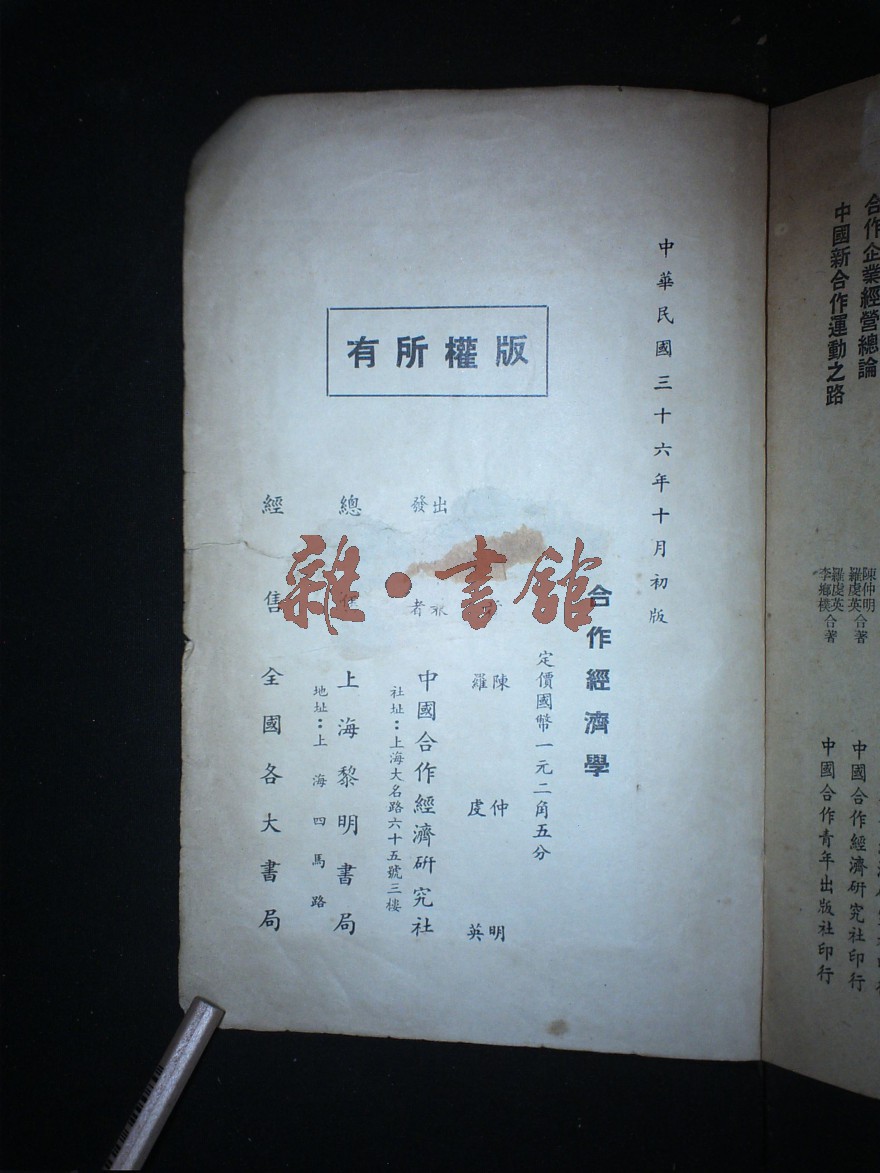 合作企業經營總論 陳仲明 羅虔英 合著 中國合作經濟研究社印行
中國新合作運動之路 羅虔英 李鄉樸 合著 中國合作青年出版社印行
中華民國三十六年十月初版
合作經濟學
定價國幣一元二角五分
陳仲明
羅虔英
出
發 者 中國合作經濟研究社
社址：上海大名路六十五號三樓
總 售 上海黎明書局
地址：上海四馬路
經售 全國各大書局
版權所有
雜·書館